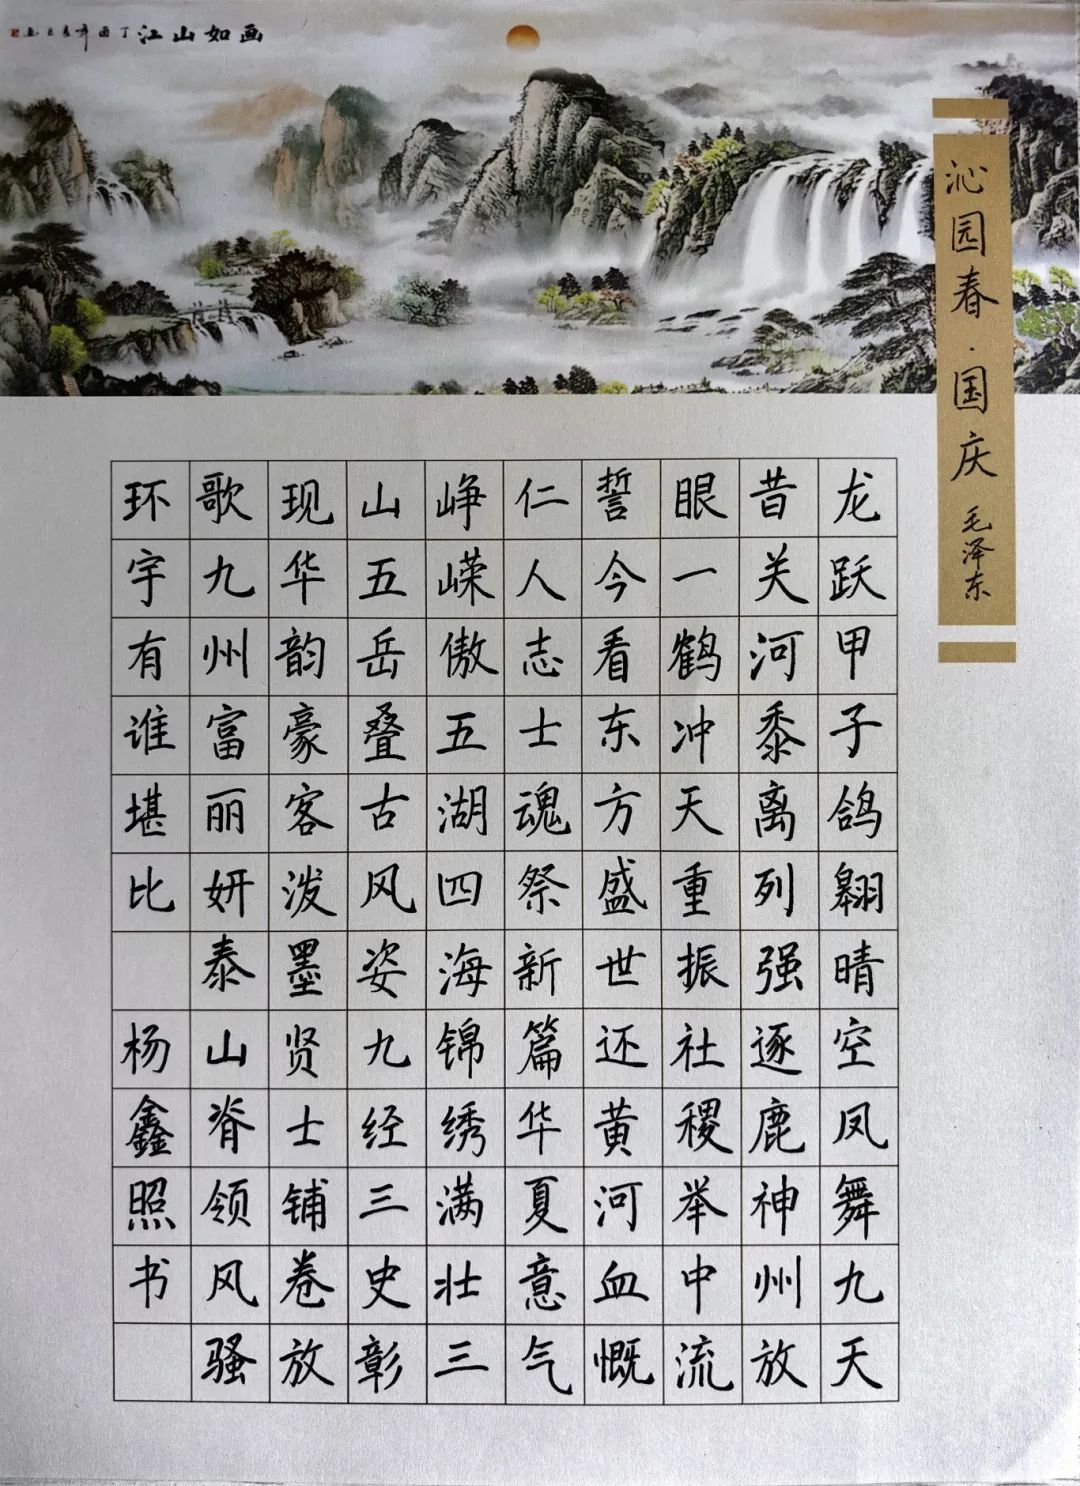 江山如画
丁酉年
沁园春·国庆 毛泽东
龙跃甲子鸽翱晴空凤舞九天
昔关河黍离列强逐鹿神州放
眼一鹤冲天重振社稷举中流
誓今看东方盛世还黄河血慨
仁人志士魂祭新篇华夏意气
峥嵘傲五湖四海锦绣满壮三
山五岳叠古风姿九经三史彰
现华韵豪客泼墨贤士铺卷放
歌九州富丽妍泰山脊领风骚
环宇有谁堪比 杨鑫照书